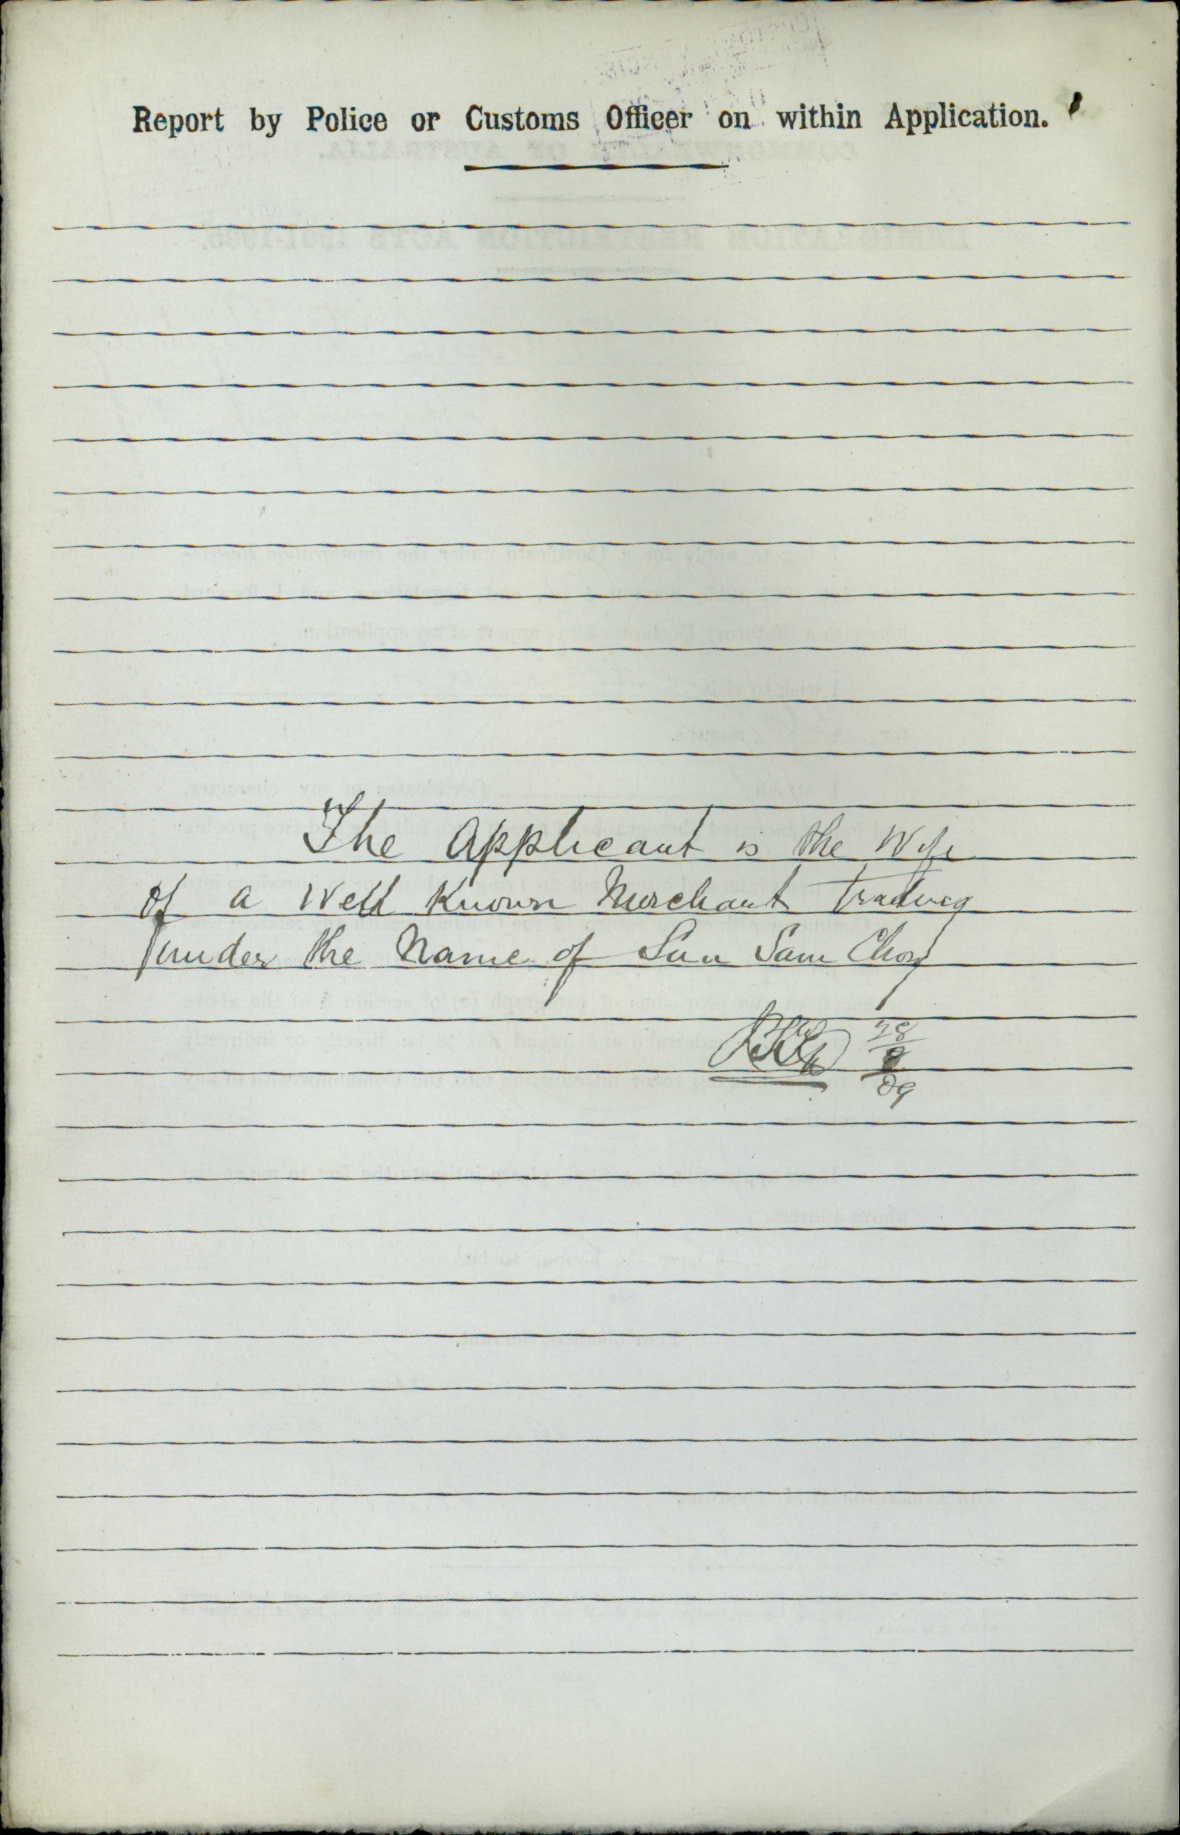 Report by Police or Customs Officer on within Application.
The Applicant is the Wife
of a Well Known Merchant trading
under the Name of Sun Sam Choy
28
09